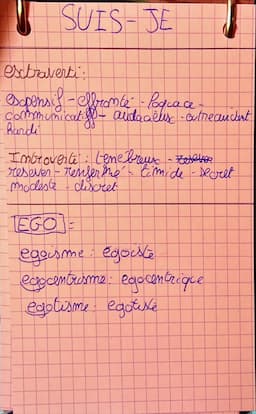 SUIS-JE
extraverti :
expensif - effronté - loquace -
communicatif - audacieux - outrecuidant
hardi
Introverti : tenebreux -
reserver - renfermé - timide - secret
modeste - discret
EGO :
egoisme : egoiste
egocentrisme : egocentrique
egotisme : egotiste